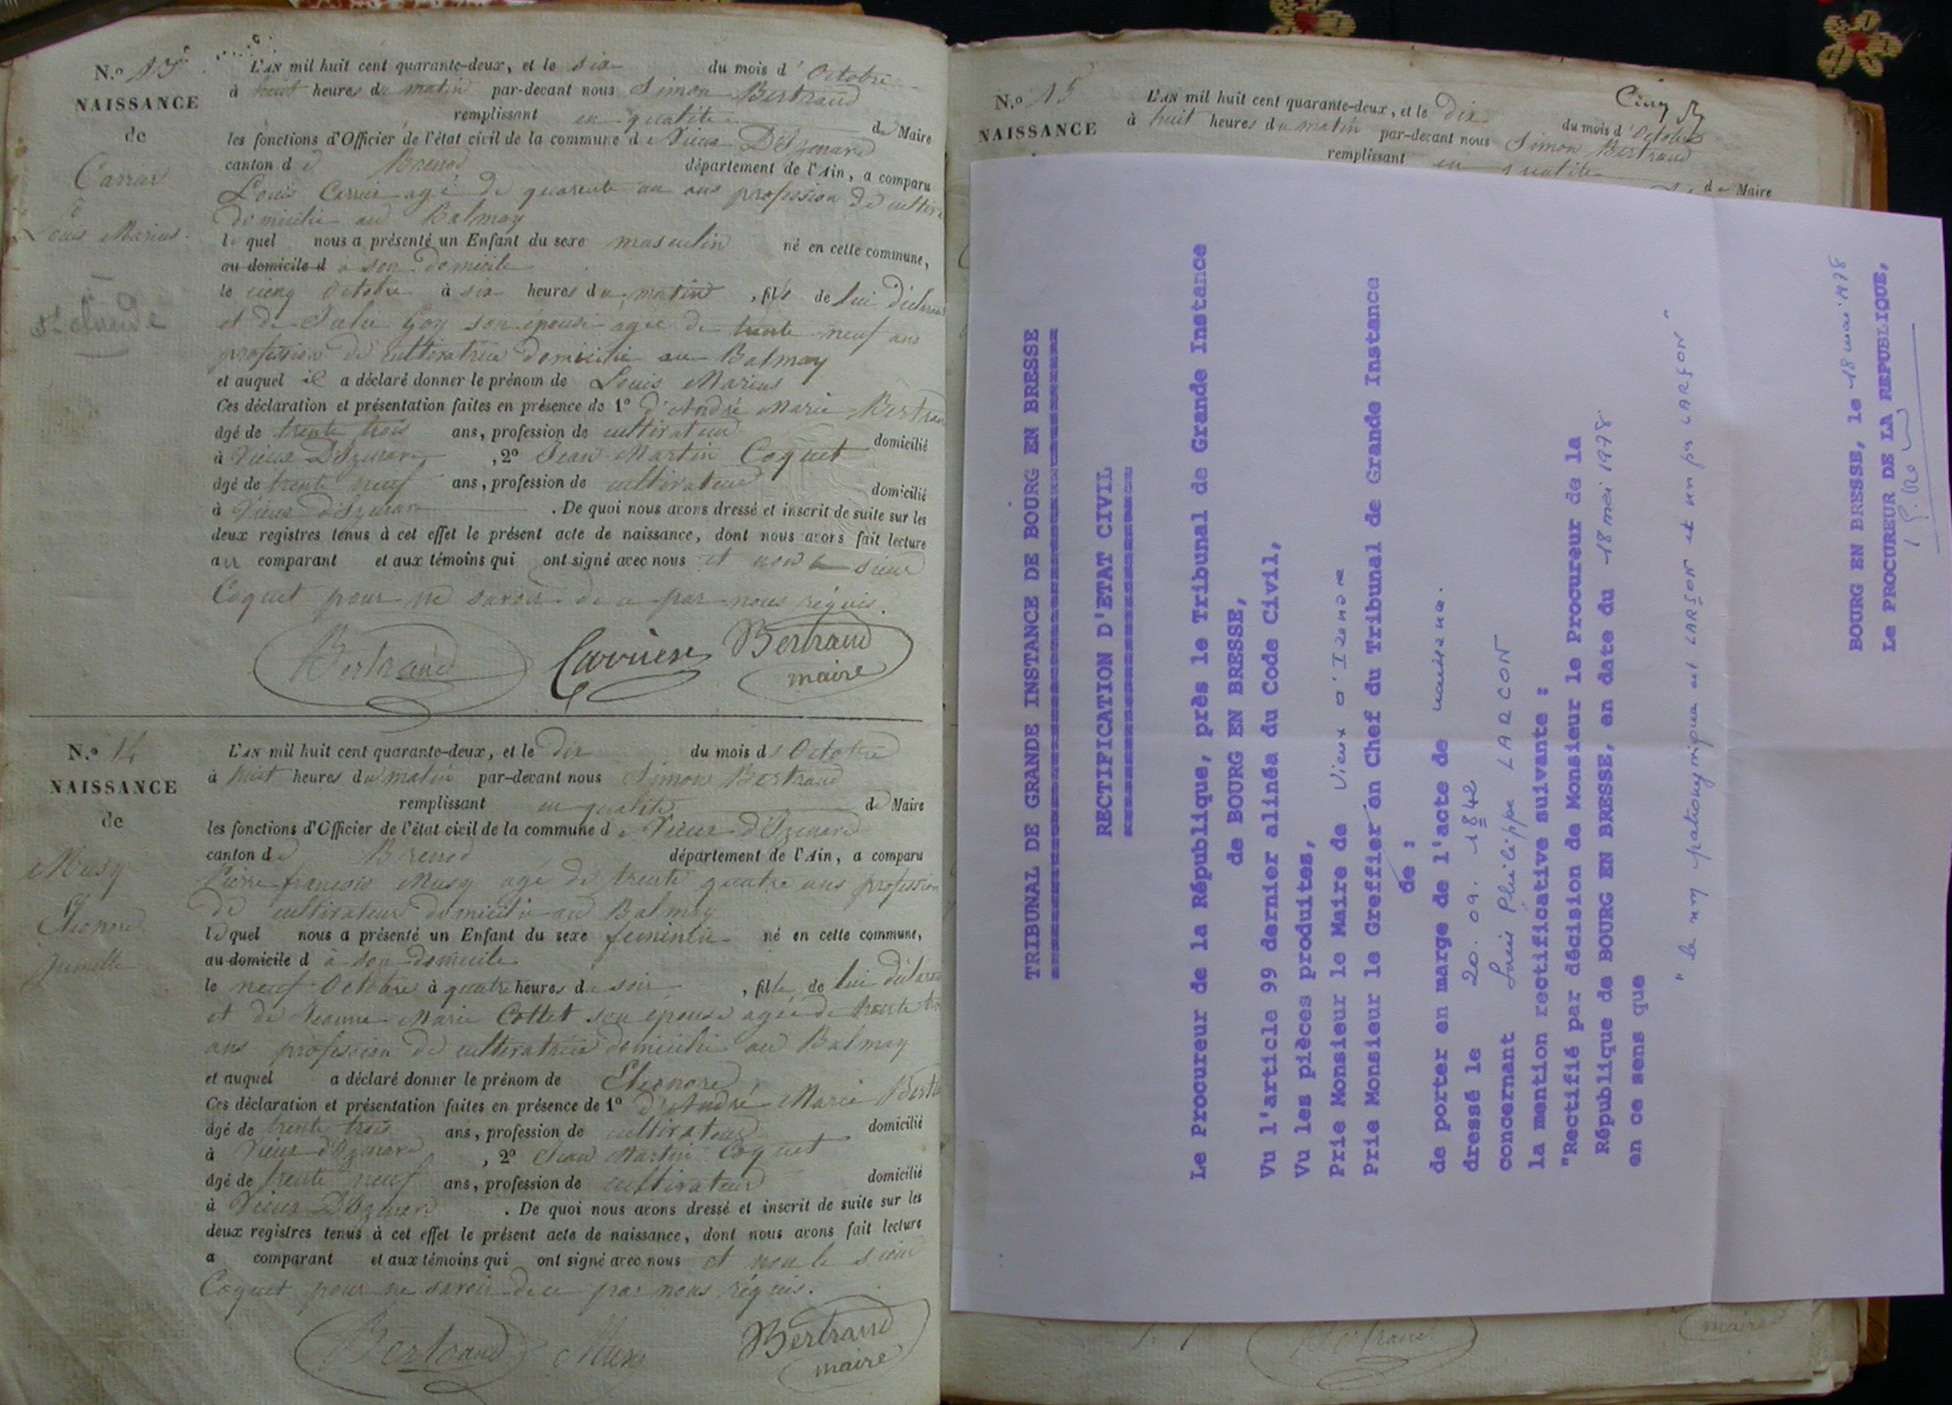 N.º 13
NAISSANCE
de
Carrier
Louis Marius.
St Claude
L'AN mil huit cent quarante-deux, et le six du mois d'Octobre
à huit heures du matin par-devant nous Simon Bertrand
remplissant en qualité de Maire
les fonctions d'Officier de l'état civil de la commune de Vieux D'Izenave
canton d Brenod département de l'Ain, a comparu
Louis Carrier agé de quarante un ans profession de cultiv
domicilié au Balmay
lequel nous a présenté un Enfant du sexe masculin né en cette commune,
au domicile d à son domicile
le cinq Octobre à six heures du matin, fils de lui déclarant
et de Goy son épouse agée de trente neuf ans
profession de cultivatrice domiciliée au Balmay
et auquel il a déclaré donner le prénom de Louis Marius
Ces déclaration et présentation faites en présence de 1º d'André Marie Bertrand
âgé de trente trois ans, profession de cultivateur domicilié
à Vieux D'Izenave, 2º Jean Martin Coquet
âgé de trente neuf ans, profession de cultivateur domicilié
à Vieux d'Izenave. De quoi nous avons dressé et inscrit de suite sur les
deux registres tenus à cet effet le présent acte de naissance, dont nous avons fait lecture
au comparant et aux témoins qui ont signé avec nous et non le sieur
Coquet pour ne savoir de ce par nous réquis.
Bertrand Carrier Bertrand
maire
N.º 14
NAISSANCE
de
Musy
Eléonore
Jumelle
L'AN mil huit cent quarante-deux, et le dix du mois d'Octobre
à huit heures du matin par-devant nous Simon Bertrand
remplissant en qualité de Maire
les fonctions d'Officier de l'état civil de la commune de Vieux d'Izenave
canton de Brenod département de l'Ain, a comparu
Pierre françois Musy agé de trente quatre ans profession
de cultivateur domicilié au Balmay
lequel nous a présenté un Enfant du sexe feminin né en cette commune,
au domicile d à son domicile
le neuf Octobre à quatre heures du soir, fille de lui déclarant
et de Jeanne Marie Cottet son épouse agée de trente
ans profession de cultivatrice domiciliée au Balmay
et auquel a déclaré donner le prénom de Eléonore
Ces déclaration et présentation faites en présence de 1º d'André Marie Bertr
âgé de trente trois ans, profession de cultivateur domicilié
à Vieux d'Izenave, 2º Jean Martin Coquet
âgé de trente neuf ans, profession de cultivateur domicilié
à Vieux D'Izenave. De quoi nous avons dressé et inscrit de suite sur les
deux registres tenus à cet effet le présent acte de naissance, dont nous avons fait lecture
a comparant et aux témoins qui ont signé avec nous et non le sieur
Coquet pour ne savoir de ce par nous réquis.
Bertrand Musy Bertrand
maire
Cinq 5
N.º 15
NAISSANCE
L'AN mil huit cent quarante-deux, et le dix du mois d'Octobre
à huit heures du matin par-devant nous Simon Bertrand
remplissant en qualité de Maire
TRIBUNAL DE GRANDE INSTANCE DE BOURG EN BRESSE
RECTIFICATION D'ETAT CIVIL
Le Procureur de la République, près le Tribunal de Grande Instance
de BOURG EN BRESSE,
Vu l'article 99 dernier alinéa du Code Civil,
Vu les pièces produites,
Prie Monsieur le Maire de Vieux d'Izenave
Prie Monsieur le Greffier en Chef du Tribunal de Grande Instance
de :
de porter en marge de l'acte de naissance.
dressé le 20.09.1842
concernant Louis Philippe LARCON
la mention rectificative suivante :
"Rectifié par décision de Monsieur le Procureur de la
République de BOURG EN BRESSE, en date du 18 mai 1978
en ce sens que
" le nom patronymique est LARÇON et non pas LARÇON "
BOURG EN BRESSE, le 18 mai 1978
Le PROCUREUR DE LA REPUBLIQUE,
Bertrand
maire